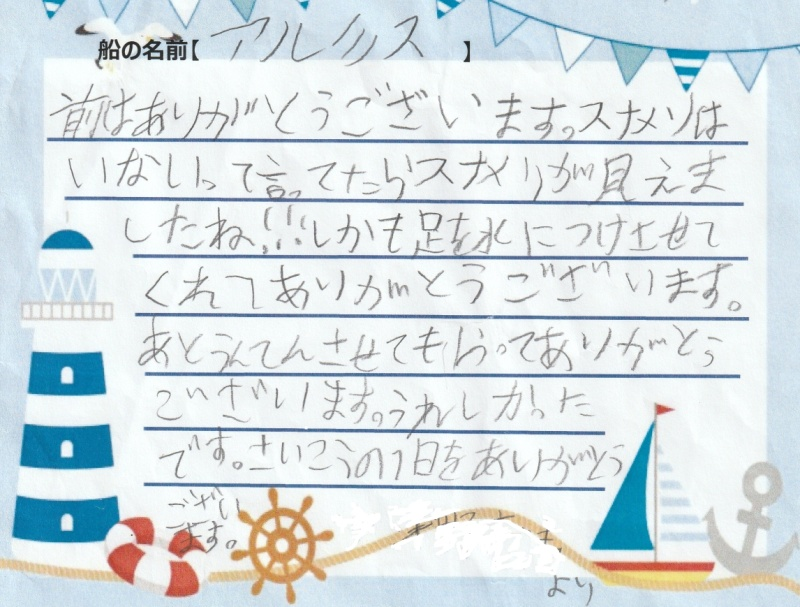 船の名前【アルタミス】
前はありがとうございます。スナメリは
いないって言ってたらスナメリが見えま
したね!!!しかも足を水につけさせて
くれてありがとうございます。
あとうんてんさせてもらってありがとう
ございます。うれしかった
です。さいこうの1日をありがとう
ござい
ます。
より